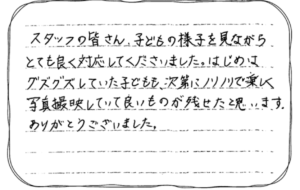 スタッフの皆さん、子どもの様子を見ながら
とても良く対応してくださいました。はじめは
グズグズしていた子どもも、次第にノリノリで楽しく
写真撮映していて良いものが残せたと思います。
ありがとうございました。